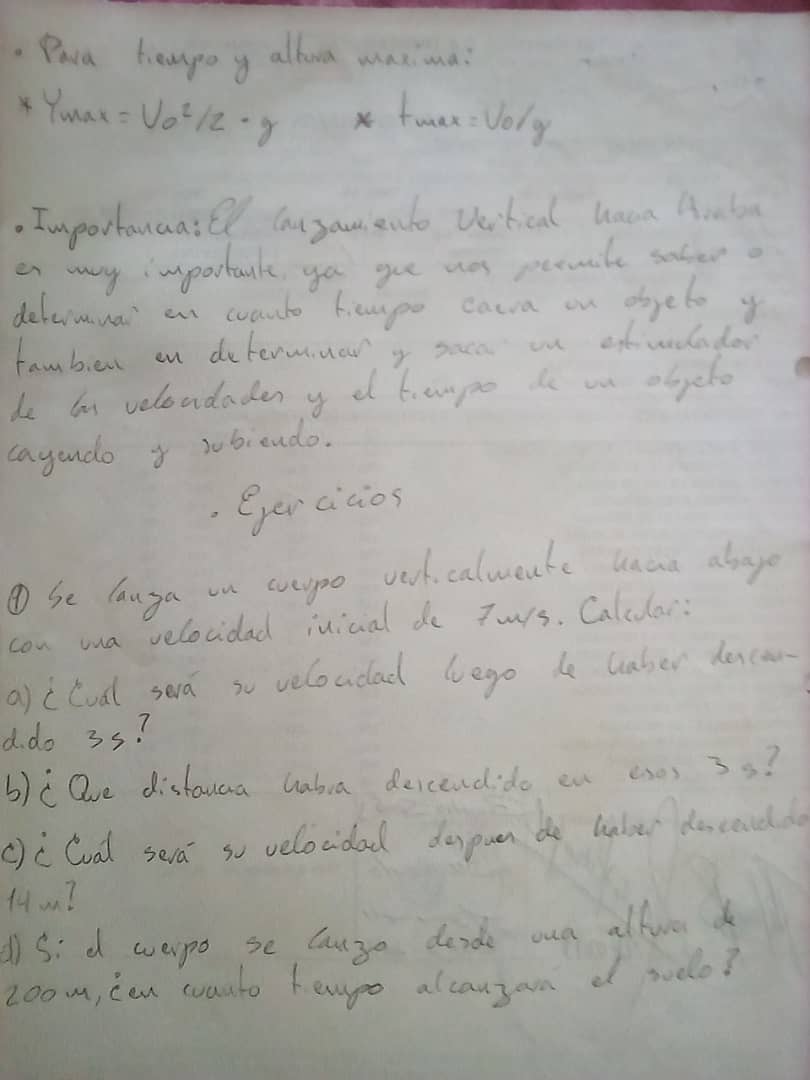 • Para tiempo y altura maxima:
* Ymax = Vo²/2 · g * tmax = Vo/g
• Importancia: El lanzamiento Vertical hacia Arriba
es muy importante, ya que nos permite saber o
determinar en cuanto tiempo caera un objeto y
tambien en determinar y saca un estimulador
de las velocidades y el tiempo de un objeto
cayendo y subiendo.
• Ejercicios
① Se lanza un cuerpo verticalmente hacia abajo
con una velocidad inicial de 7 m/s. Calcular:
a) ¿Cuál será su velocidad luego de haber descen-
dido 3s?
b) ¿Que distancia habra descendido en esos 3s?
c) ¿Cuál será su velocidad despues de haber descendido
14 m?
d) Si el cuerpo se lanzo desde una altura de
200 m, ¿en cuanto tiempo alcanzara el suelo?